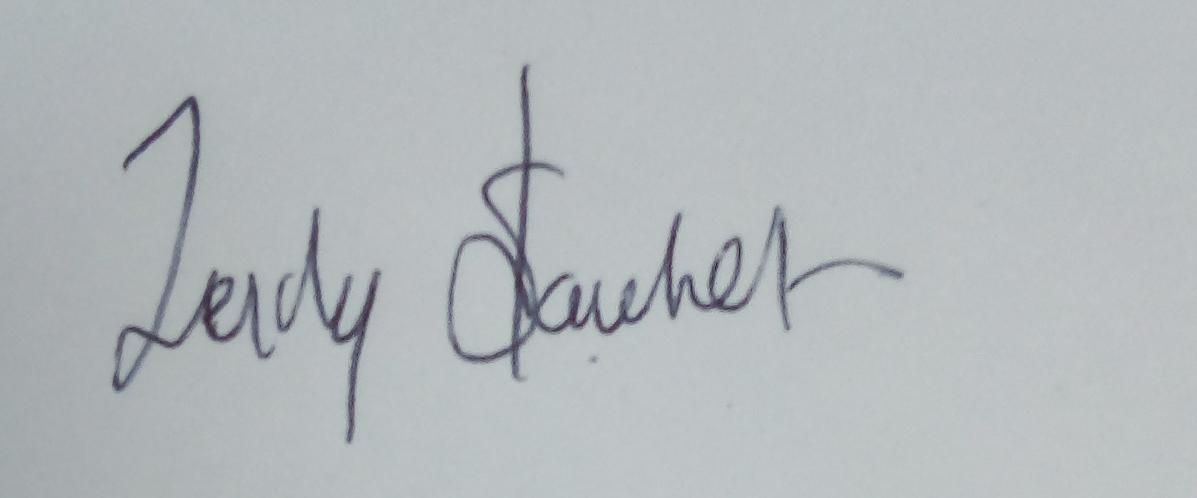 Leidy Sanchez